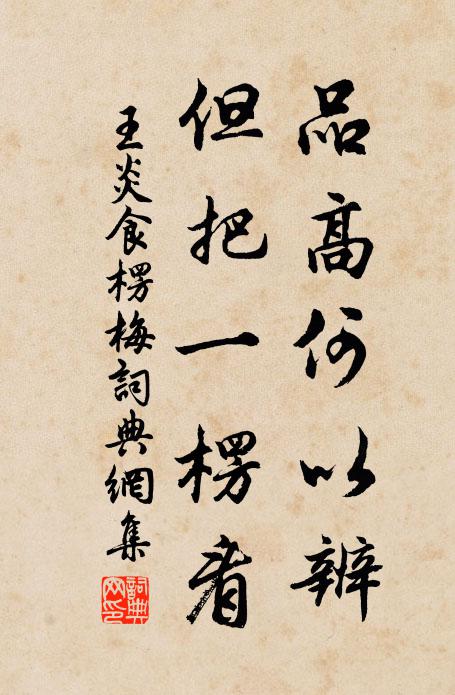 品高何以辨
但把一楞看
王炎食楞梅詞典網集
詞典网印